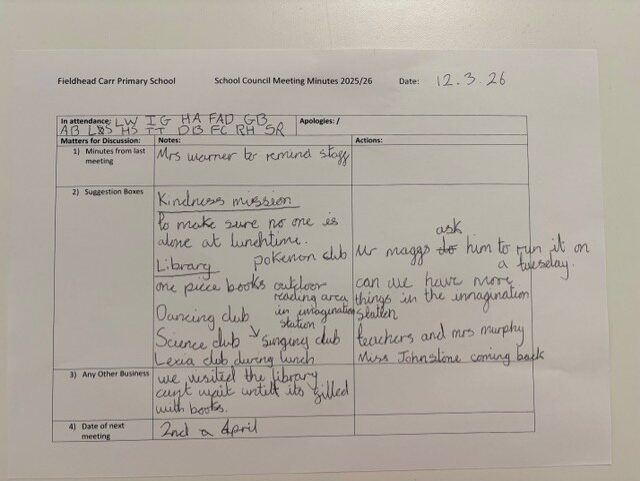 Fieldhead Carr Primary School School Council Meeting Minutes 2025/26 Date: 12.3.26
In attendance: LW IG HA FAD GB
AB LBS HS TT DB FC RH SR
Apologies: /
Matters for Discussion: Notes: Actions:
1) Minutes from last meeting
Mrs warner to remind staff
2) Suggestion Boxes
Kindness mission
to make sure no one is
alone at lunchtime.
Library pokemon club
one piece books outdoor
reading area
in imagination
station
Dancing club
Science club singing club
Lexia club during lunch
ask
Mr maggs do him to run it on
a tuesday.
can we have more
things in the imnagination
station
teachers and mrs murphy
Miss Johnstone coming back
3) Any Other Business
we visited the library
cant wait untill its filled
with books.
4) Date of next
meeting
2nd a April